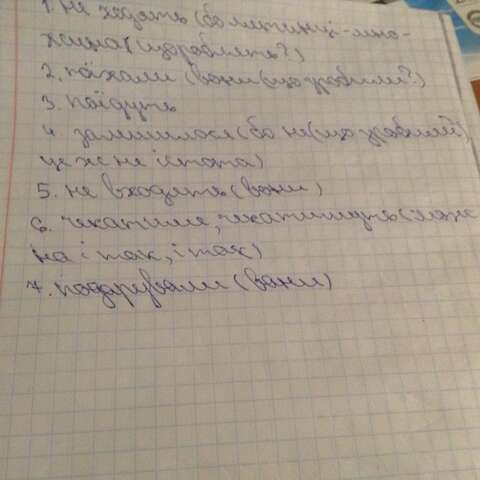 1. не ходять (бо мешканці - мно-
жина (що роблять?)
2. поїхали (вони (що зробили?)
3. поїдуть
4. залишилося (бо не (що зробили)
це ж не істота)
5. не входять (вони)
6. чекатиме, чекатимуть (можс
на і так, і так)
7. подарували (вони)